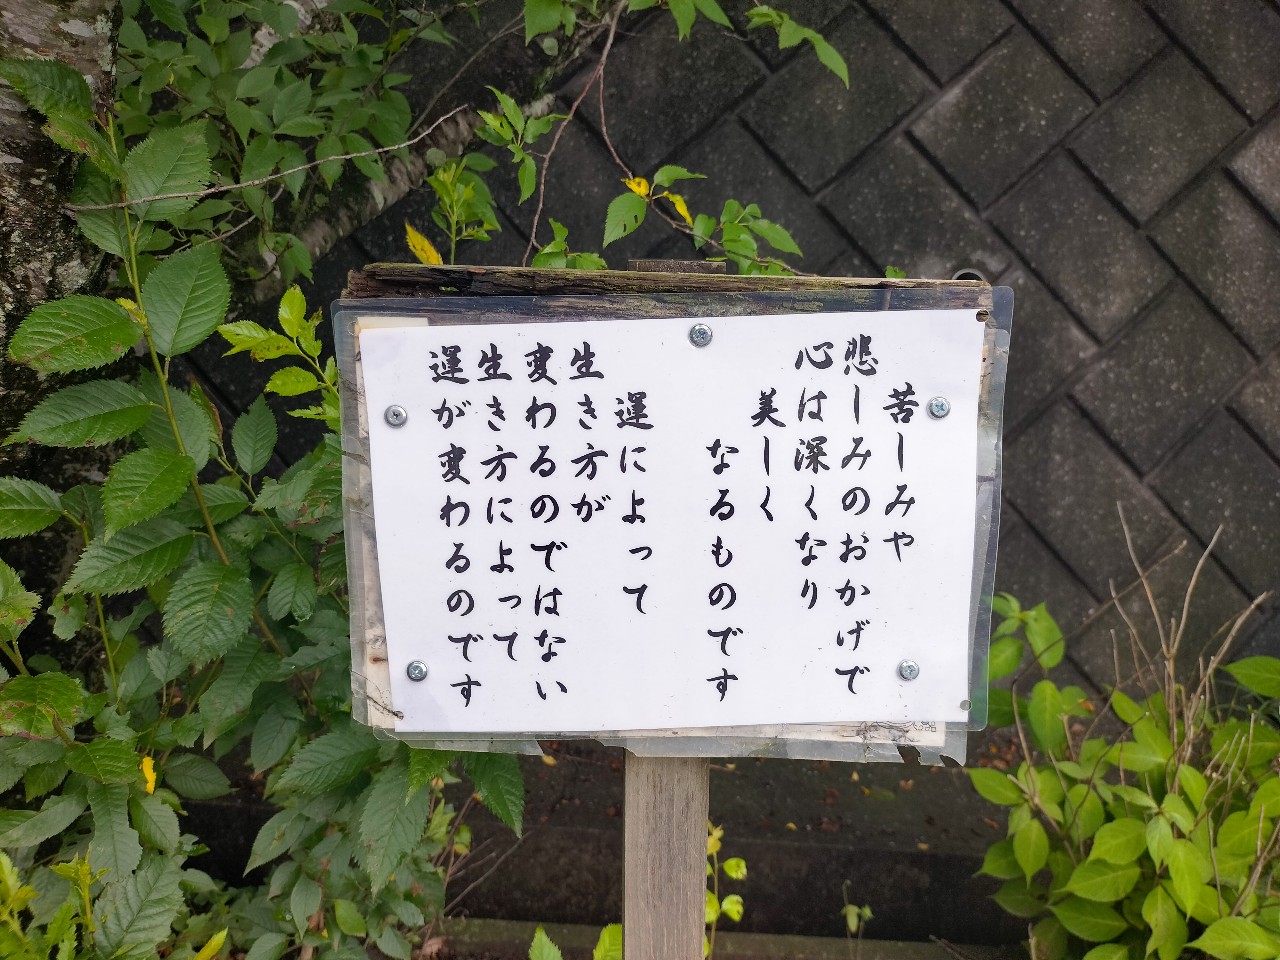 苦しみや
悲しみのおかげで
心は深くなり
美しく
なるものです
運によって
生き方が
変わるのではない
生き方によって
運が変わるのです